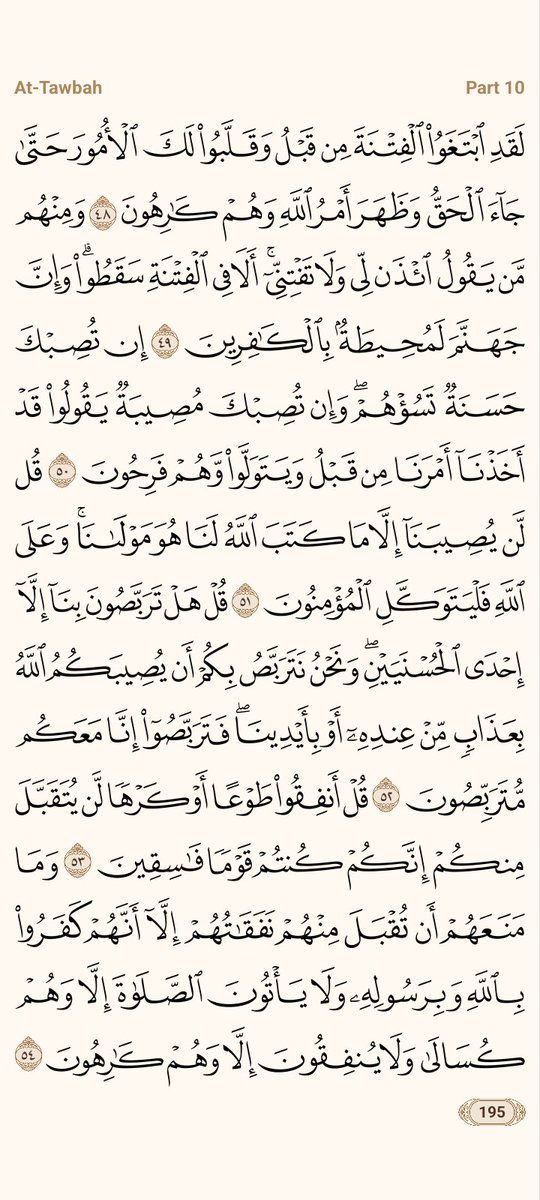 At-Tawbah
Part 10
لَقَدِ ٱبْتَغَوُا۟ ٱلْفِتْنَةَ مِن قَبْلُ وَقَلَّبُوا۟ لَكَ ٱلْأُمُورَ حَتَّىٰ
جَآءَ ٱلْحَقُّ وَظَهَرَ أَمْرُ ٱللَّهِ وَهُمْ كَـٰرِهُونَ ٤٨ وَمِنْهُم
مَّن يَقُولُ ٱئْذَن لِّى وَلَا تَفْتِنِّىٓ ۚ أَلَا فِى ٱلْفِتْنَةِ سَقَطُوا۟ ۗ وَإِنَّ
جَهَنَّمَ لَمُحِيطَةٌۢ بِٱلْكَـٰفِرِينَ ٤٩ إِن تُصِبْكَ
حَسَنَةٌ تَسُؤْهُمْ ۖ وَإِن تُصِبْكَ مُصِيبَةٌ يَقُولُوا۟ قَدْ
أَخَذْنَآ أَمْرَنَا مِن قَبْلُ وَيَتَوَلَّوا۟ وَّهُمْ فَرِحُونَ ٥٠ قُل
لَّن يُصِيبَنَآ إِلَّا مَا كَتَبَ ٱللَّهُ لَنَا هُوَ مَوْلَىٰنَا ۚ وَعَلَى
ٱللَّهِ فَلْيَتَوَكَّلِ ٱلْمُؤْمِنُونَ ٥١ قُلْ هَلْ تَرَبَّصُونَ بِنَآ إِلَّآ
إِحْدَى ٱلْحُسْنَيَيْنِ ۖ وَنَحْنُ نَتَرَبَّصُ بِكُمْ أَن يُصِيبَكُمُ ٱللَّهُ
بِعَذَابٍ مِّنْ عِندِهِۦٓ أَوْ بِأَيْدِينَا ۖ فَتَرَبَّصُوٓا۟ إِنَّا مَعَكُم
مُّتَرَبِّصُونَ ٥٢ قُلْ أَنفِقُوا۟ طَوْعًا أَوْ كَرْهًا لَّن يُتَقَبَّلَ
مِنكُمْ إِنَّكُمْ كُنتُمْ قَوْمًا فَـٰسِقِينَ ٥٣ وَمَا
مَنَعَهُمْ أَن تُقْبَلَ مِنْهُمْ نَفَقَـٰتُهُمْ إِلَّآ أَنَّهُمْ كَفَرُوا۟
بِٱللَّهِ وَبِرَسُولِهِۦ وَلَا يَأْتُونَ ٱلصَّلَوٰةَ إِلَّا وَهُمْ
كُسَالَىٰ وَلَا يُنفِقُونَ إِلَّا وَهُمْ كَـٰرِهُونَ ٥٤
195